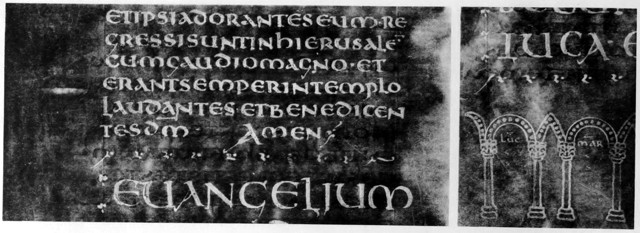 ETIPSIADORANTESEUM·RE
GRESSISUNTINHIERUSALE̅
CUMGAUDIOMAGNO·ET
ERANTSEMPERINTEMPLO
LAUDANTES·ETBENEDICEN
TESD̅M̅· AMEN
EUANGELIUM
LUCA·E
LUC MAR